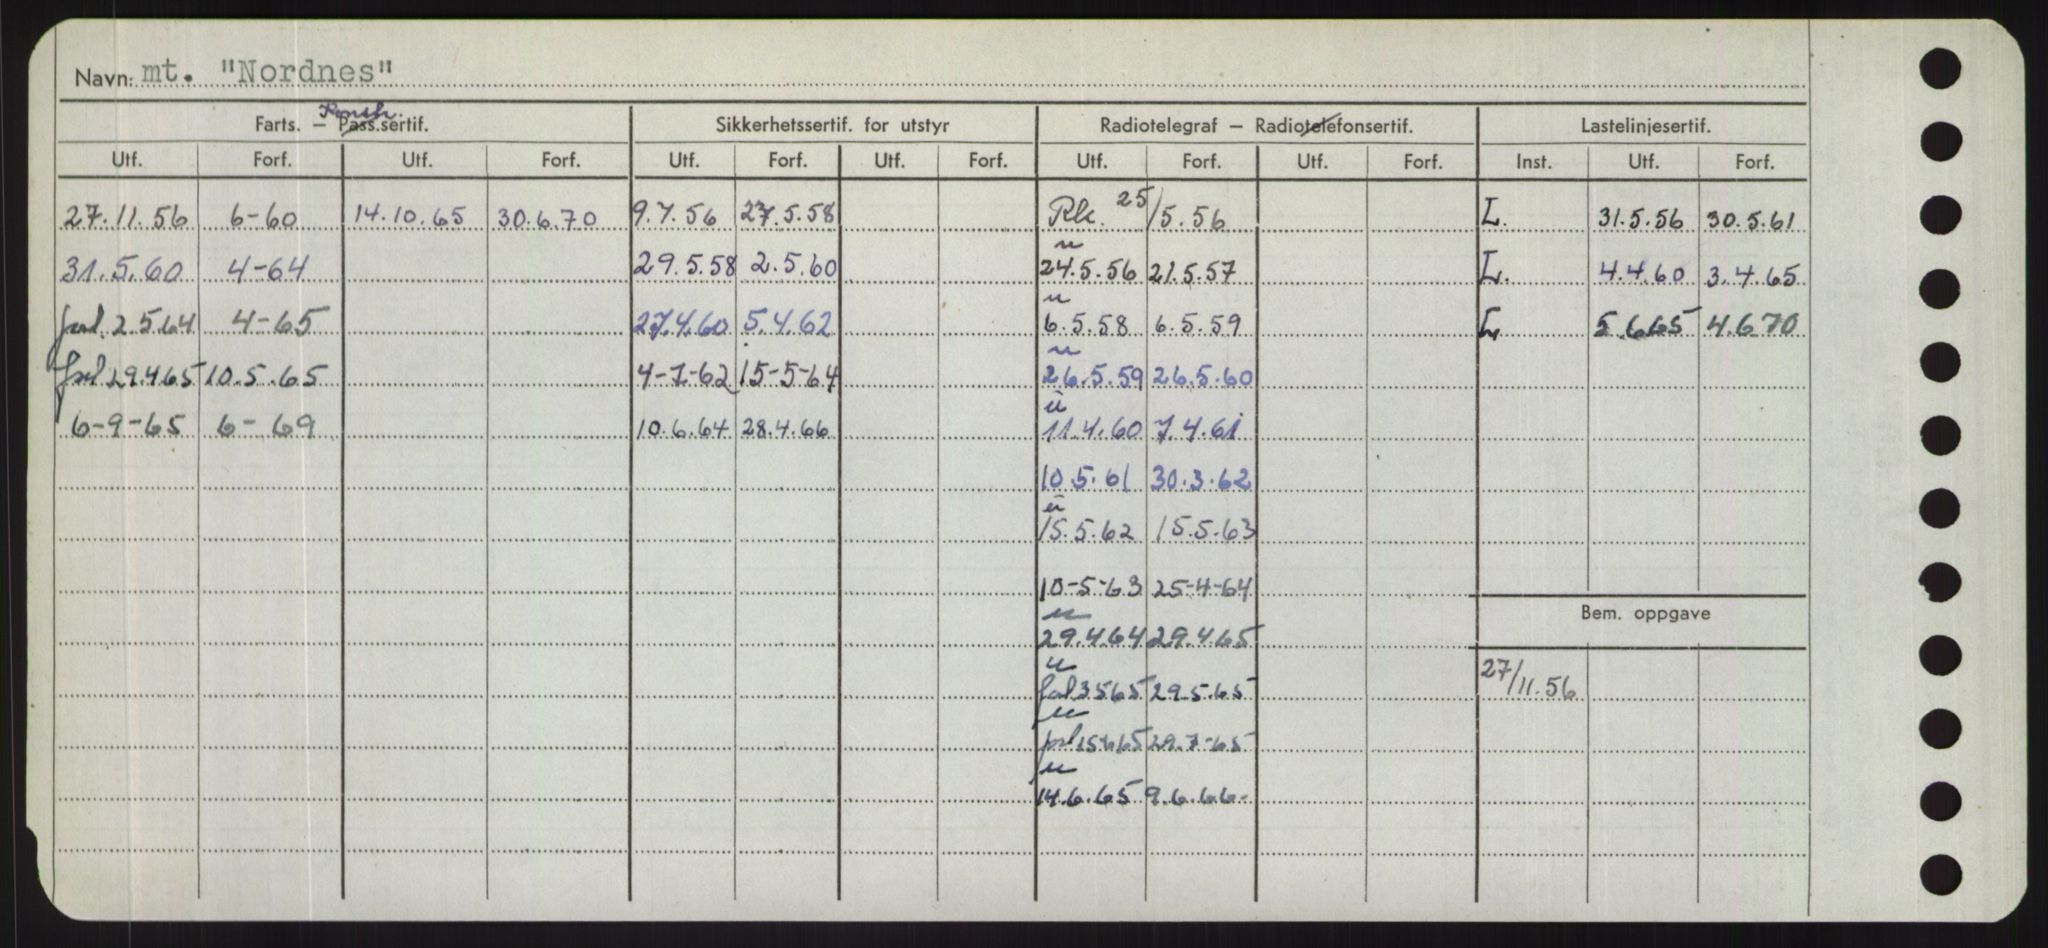 Navn: mt. "Nordnes"
Konstr.
Farts. – Pass.sertif. Sikkerhetssertif. for utstyr Radiotelegraf – Radiotelefonsertif. Lastelinjesertif.
Utf. Forf. Utf. Forf. Utf. Forf. Utf. Forf. Utf. Forf. Utf. Forf. Inst. Utf. Forf.
27.11.56 6-60 14.10.65 30.6.70 9.7.56 27.5.58 Rk. 25/5.56 L. 31.5.56 30.5.61
31.5.60 4-64 29.5.58 2.5.60 24.5.56 21.5.57 L. 4.4.60 3.4.65
2.5.64 4-65 27.4.60 5.4.62 6.5.58 6.5.59 L 5.6.65 4.6.70
29.4.65 10.5.65 4-7-62 15-5-64 26.5.59 26.5.60
6-9-65 6-69 10.6.64 28.4.66 11.4.60 7.4.61
10.5.61 30.3.62
15.5.62 15.5.63
10-5-63 25-4-64
Bem. oppgave
29.4.64 29.4.65
27/11.56
3565 29.5.65
29.7-65
14.6.65 9.6.66-